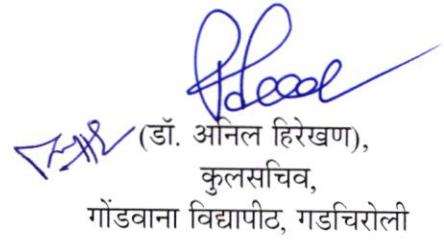 (डॉ. अनिल हिरेखण),
कुलसचिव,
गोंडवाना विद्यापीठ, गडचिरोली